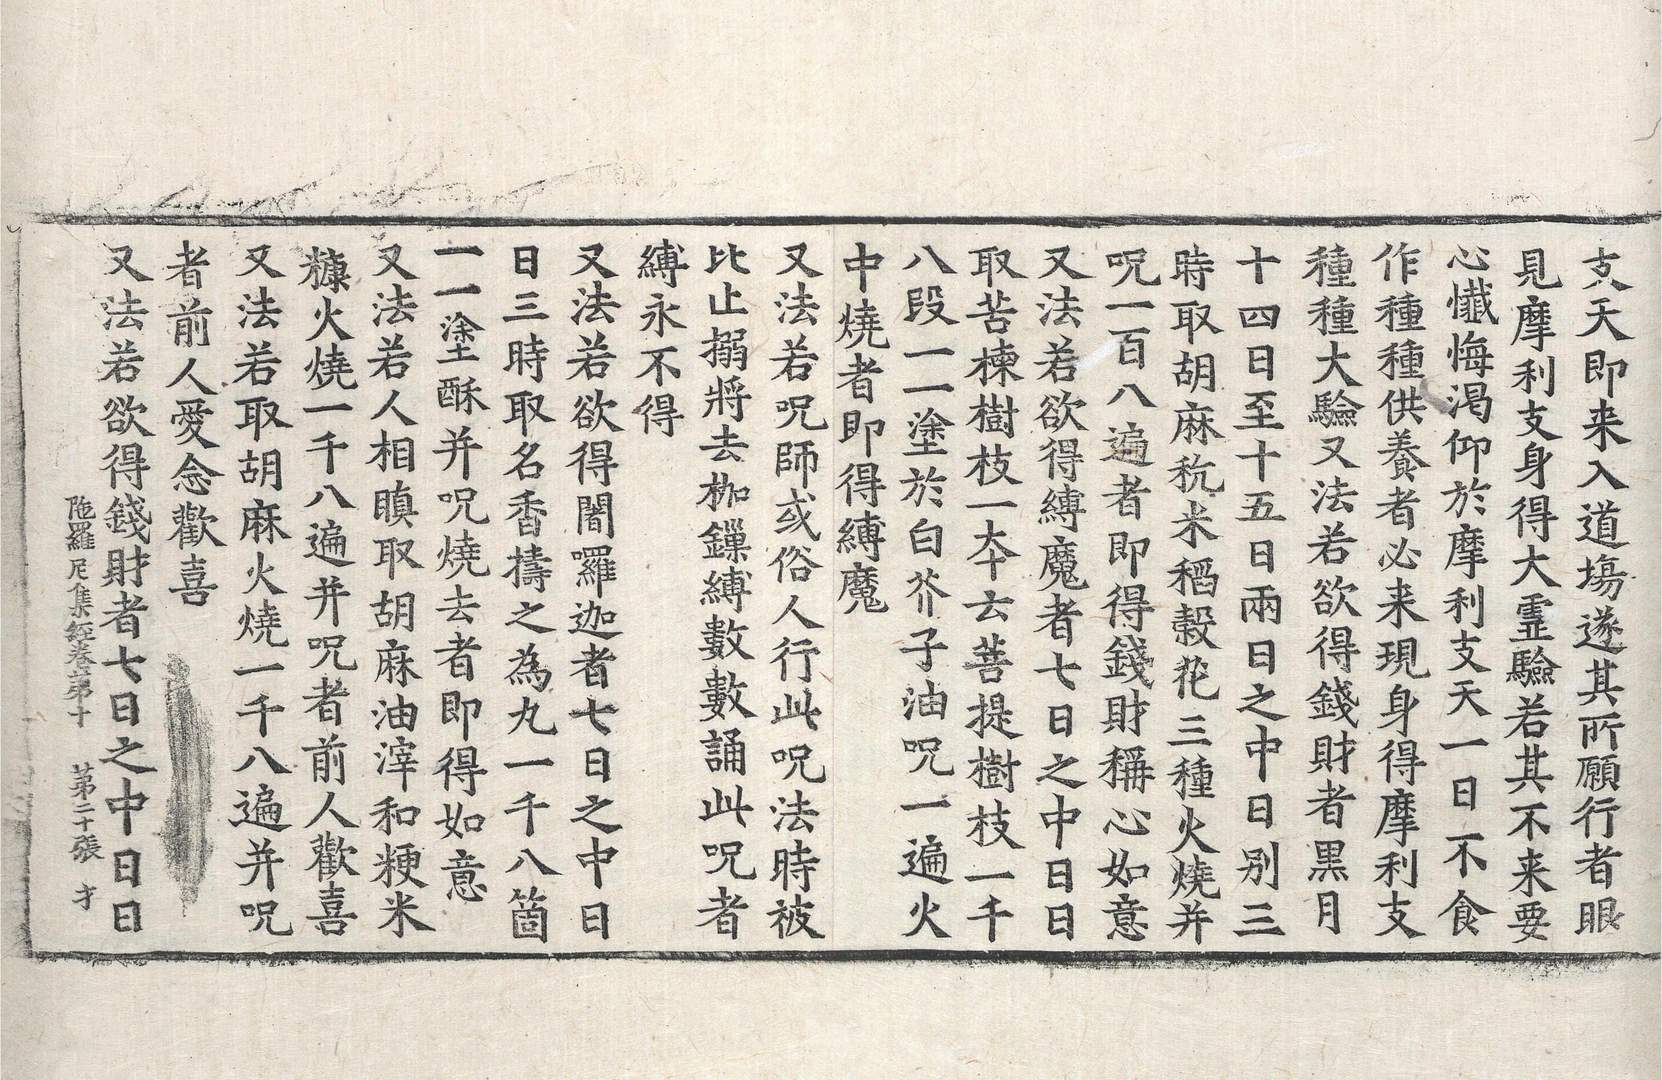 支天即来入道場遂其所願行者眼
見摩利支身得大靈驗若其不来要
心懺悔渇仰於摩利支天一日不食
作種種供養者必来現身得摩利支
種種大驗又法若欲得錢財者黒月
十四日至十五日兩日之中日別三
時取胡麻秔米稻穀花三種火燒并
呪一百八遍者即得錢財稱心如意
又法若欲得縛魔者七日之中日日
取苦楝樹枝一本云菩提樹枝一千
八段一一塗於白芥子油呪一遍火
中燒者即得縛魔
又法若呪師或俗人行此呪法時被
比止搦將去枷鏁縛數數誦此呪者
縛永不得
又法若欲得闍囉迦者七日之中日
日三時取名香擣之為丸一千八箇
一一塗酥并呪燒去者即得如意
又法若人相瞋取胡麻油滓和粳米
糠火燒一千八遍并呪者前人歡喜
又法若取胡麻火燒一千八遍并呪
者前人愛念歡喜
又法若欲得錢財者七日之中日日
陁羅尼集經卷第十 第二十張 才